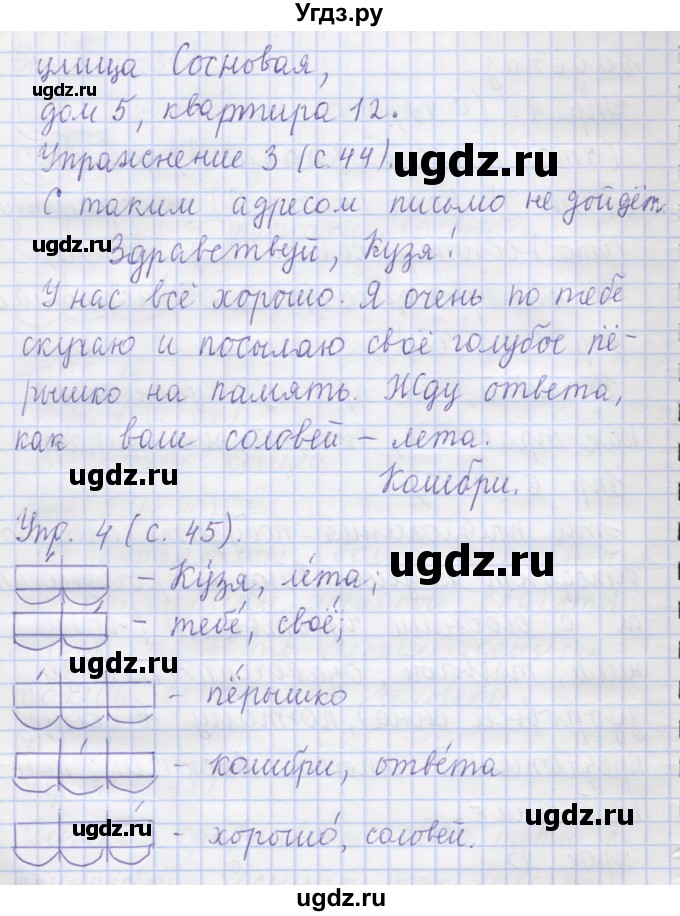 Угдз.ру
улица Сосновая,
дом 5, квартира 12.
Упражнение 3 (с. 44).
С таким адресом письмо не дойдёт.
Здравствуй, Кузя!
У нас всё хорошо. Я очень по тебе
скучаю и посылаю своё голубое пё-
рышко на память. Жду ответа,
как ваш соловей – лета.
Колибри.
Упр. 4 (с. 45).
– Ку́зя, ле́та;
– тебе́, своё;
– пёрышко
– коли́бри, отве́та
– хорошо́, соловей.
ugdz.ru
ugdz.ru
ugdz.ru
ugdz.ru
ugdz.ru
ugdz.ru
ugdz.ru
ugdz.ru
ugdz.ru
ugdz.ru
ugdz.ru